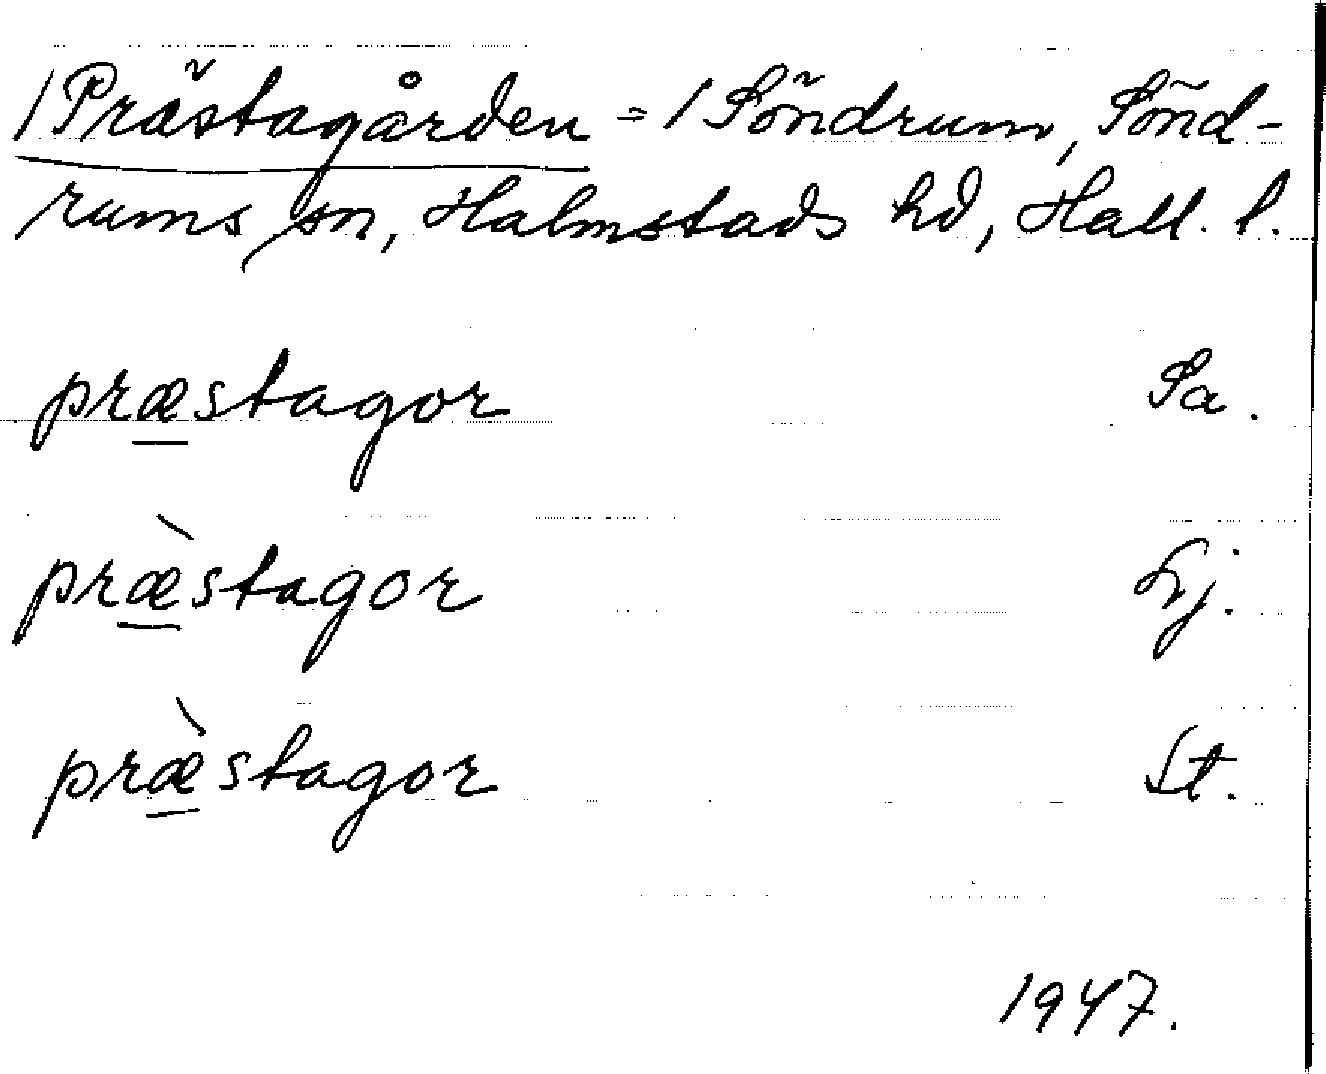 /Prästagården = /Söndrum, Sönd-
rums sn, Halmstads hd, Hall. l.
præstagor Sa.
præ̀stagor Lj.
præ̀stagor St.
1947.